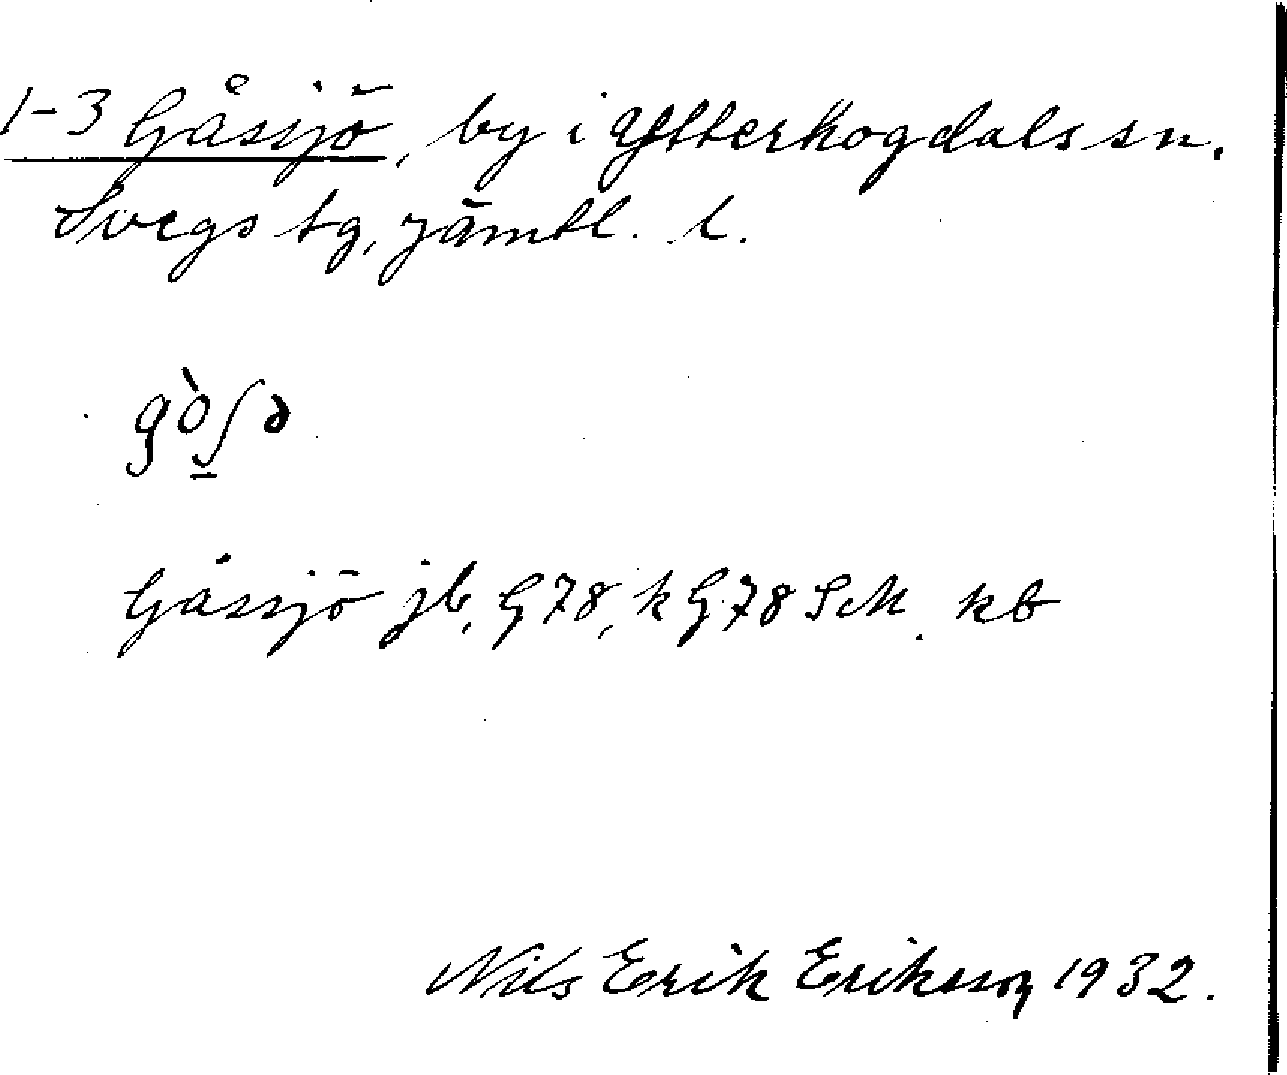 1-3 Gåssjö, by i Ytterhogdals sn.
Svegs tg, Jämtl. l.
gòʃə
Gåssjö jb, G78, k G78 SeM. kb
Nils Erik Eriksson 1932.